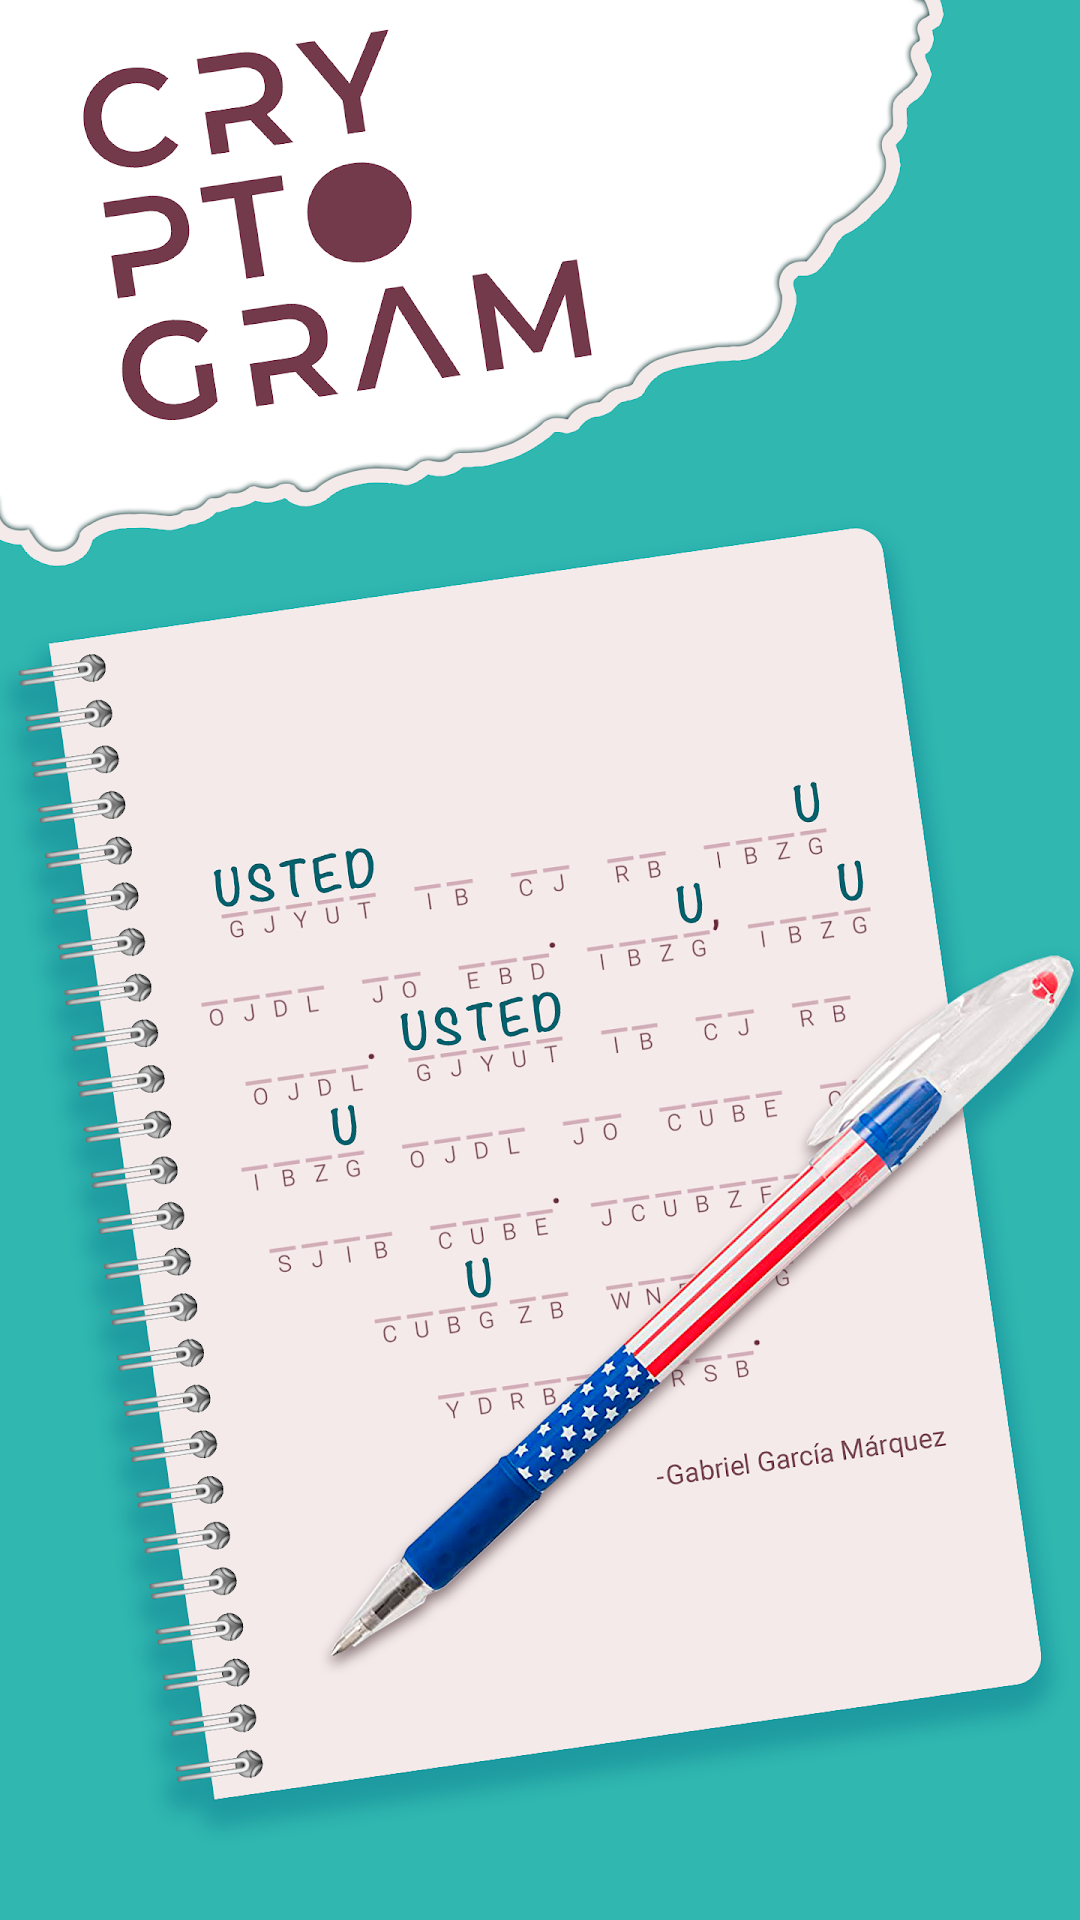 CRY
PTOGRAM
U
USTED
GJYUT IB CJ RB IBZG
U, U
OJDL JO EBD. IBZG IBZG
USTED
OJDL. GJYUT IB CJ RB
U
IBZG OJDL JO CUBE
SJIB CUBE. JCUBZF
U
CUBGZB WN G
YDRB RSB.
-Gabriel García Márquez